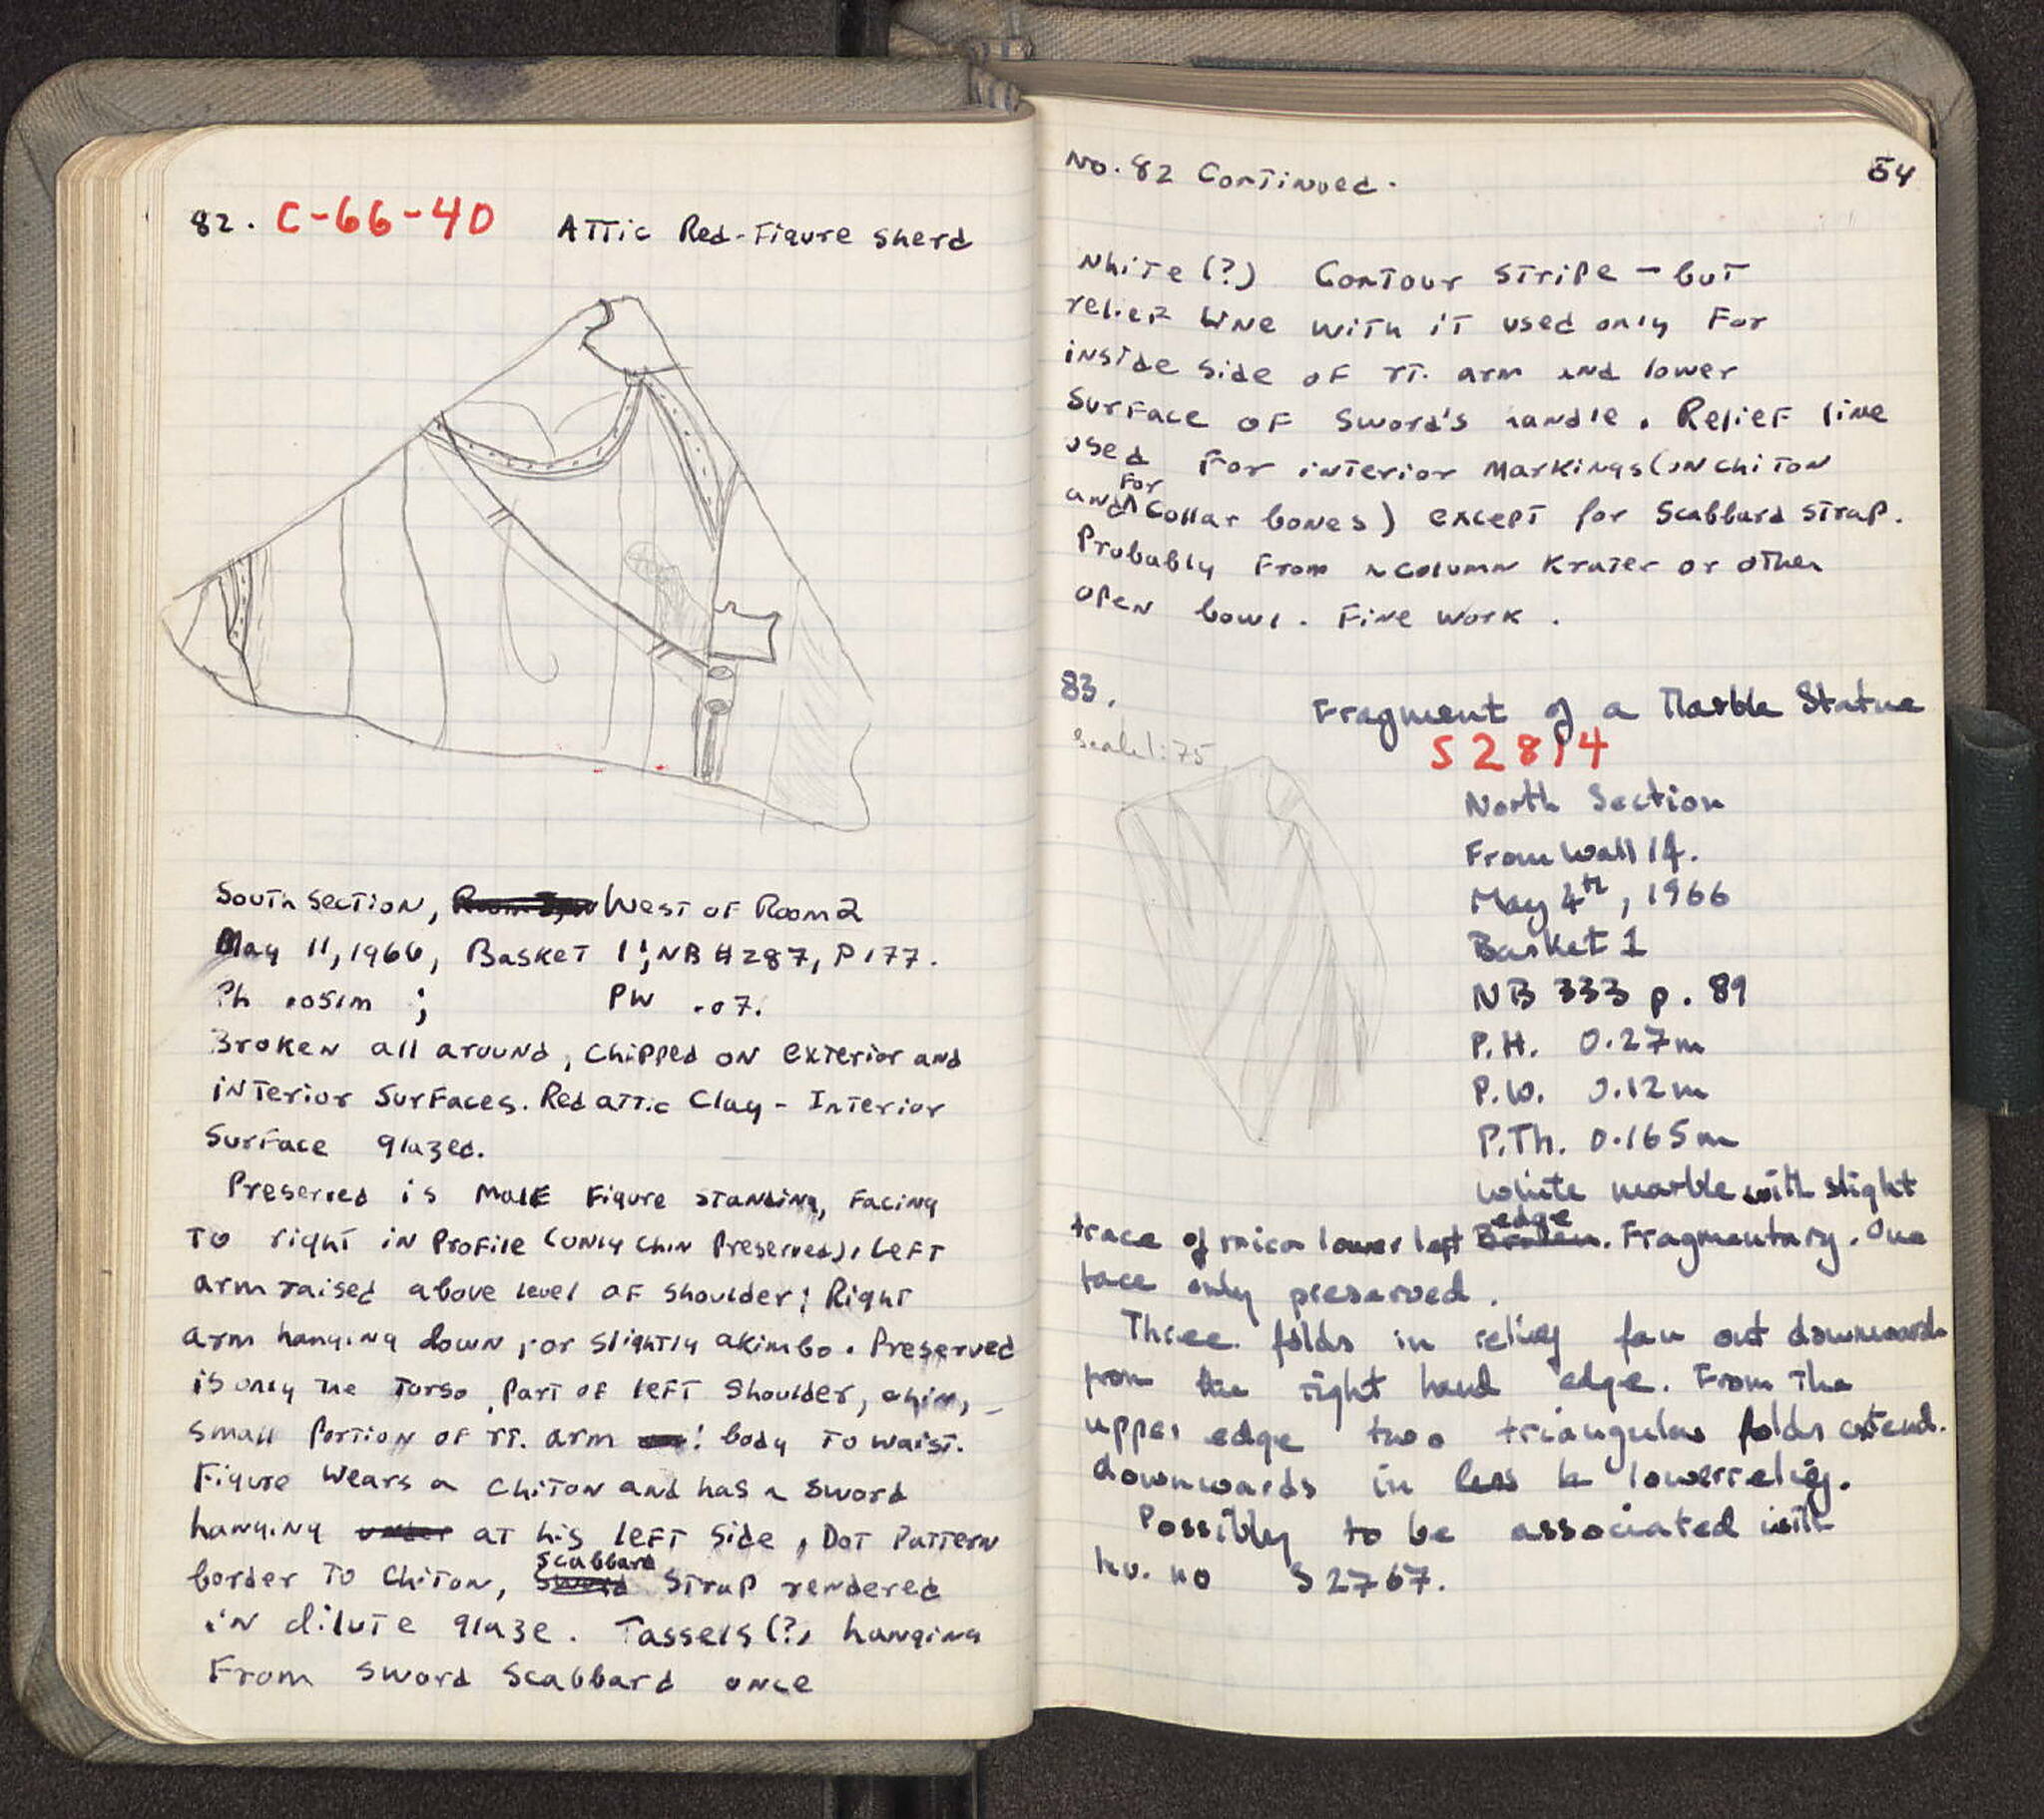 82. C-66-40 Attic Red-Figure sherd
South Section, West of Room 2
May 11, 1966, Basket 1; NB #287, P 177.
Ph .051m ; PW .07.
Broken all around, chipped on exterior and
interior surfaces. Red attic Clay - Interior
surface glazed.
Preserved is male figure standing, facing
to right in profile (only chin preserved), left
arm raised above level of shoulder; Right
arm hanging down, or slightly akimbo. Preserved
is only the torso, part of left shoulder, chin,
small portion of rt. arm ; body to waist.
Figure wears a chiton and has a sword
hanging under at his left side, Dot Pattern
border to chiton, sword scabbard strap rendered
in dilute glaze. Tassels (?) hanging
From sword scabbard once
No. 82 Continued. 54
White (?) Contour stripe - but
relief line with it used only for
inside side of rt. arm and lower
surface of sword's handle. Relief line
used for interior markings (on chiton
and for collar bones) except for scabbard strap.
Probably from a column krater or other
open bowl. Fine work.
83. Fragment of a Marble Statue
Scale 1:75 S2814
North Section
From wall 14.
May 4th, 1966
Basket 1
NB 333 p. 89
P.H. 0.27m
P.W. 0.12m
P.Th. 0.165m
White marble with slight
trace of mica lower left Broken edge. Fragmentary. One
face only preserved.
Three folds in relief fan out downwards
from the right hand edge. From the
upper edge two triangular folds extend
downwards in less lower relief.
Possibly to be associated with
Inv. no S2767.